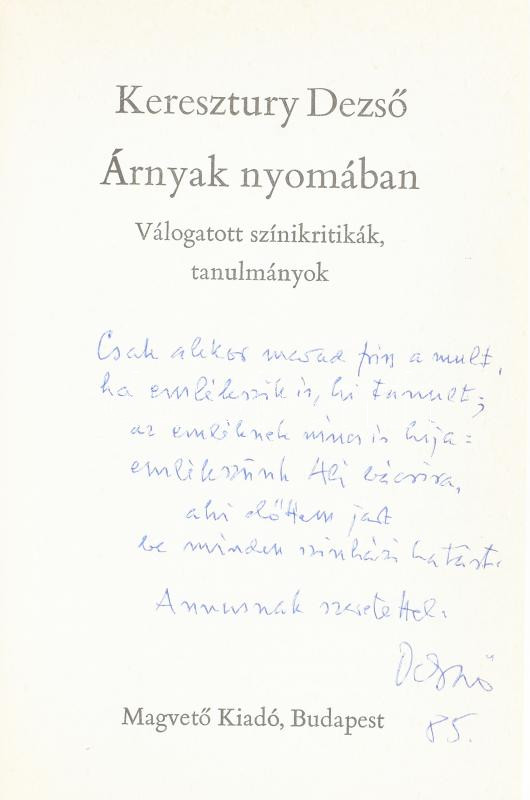 Keresztury Dezső
Árnyak nyomában
Válogatott színikritikák,
tanulmányok
Csak akkor marad friss a mult,
ha emlékszik is, ki tanult;
az emléknek nincs is hija:
emlékszünk bácsira,
aki előttem járt
be minden szinházi határt.
Annusnak szeretettel.
Dezső
85.
Magvető Kiadó, Budapest